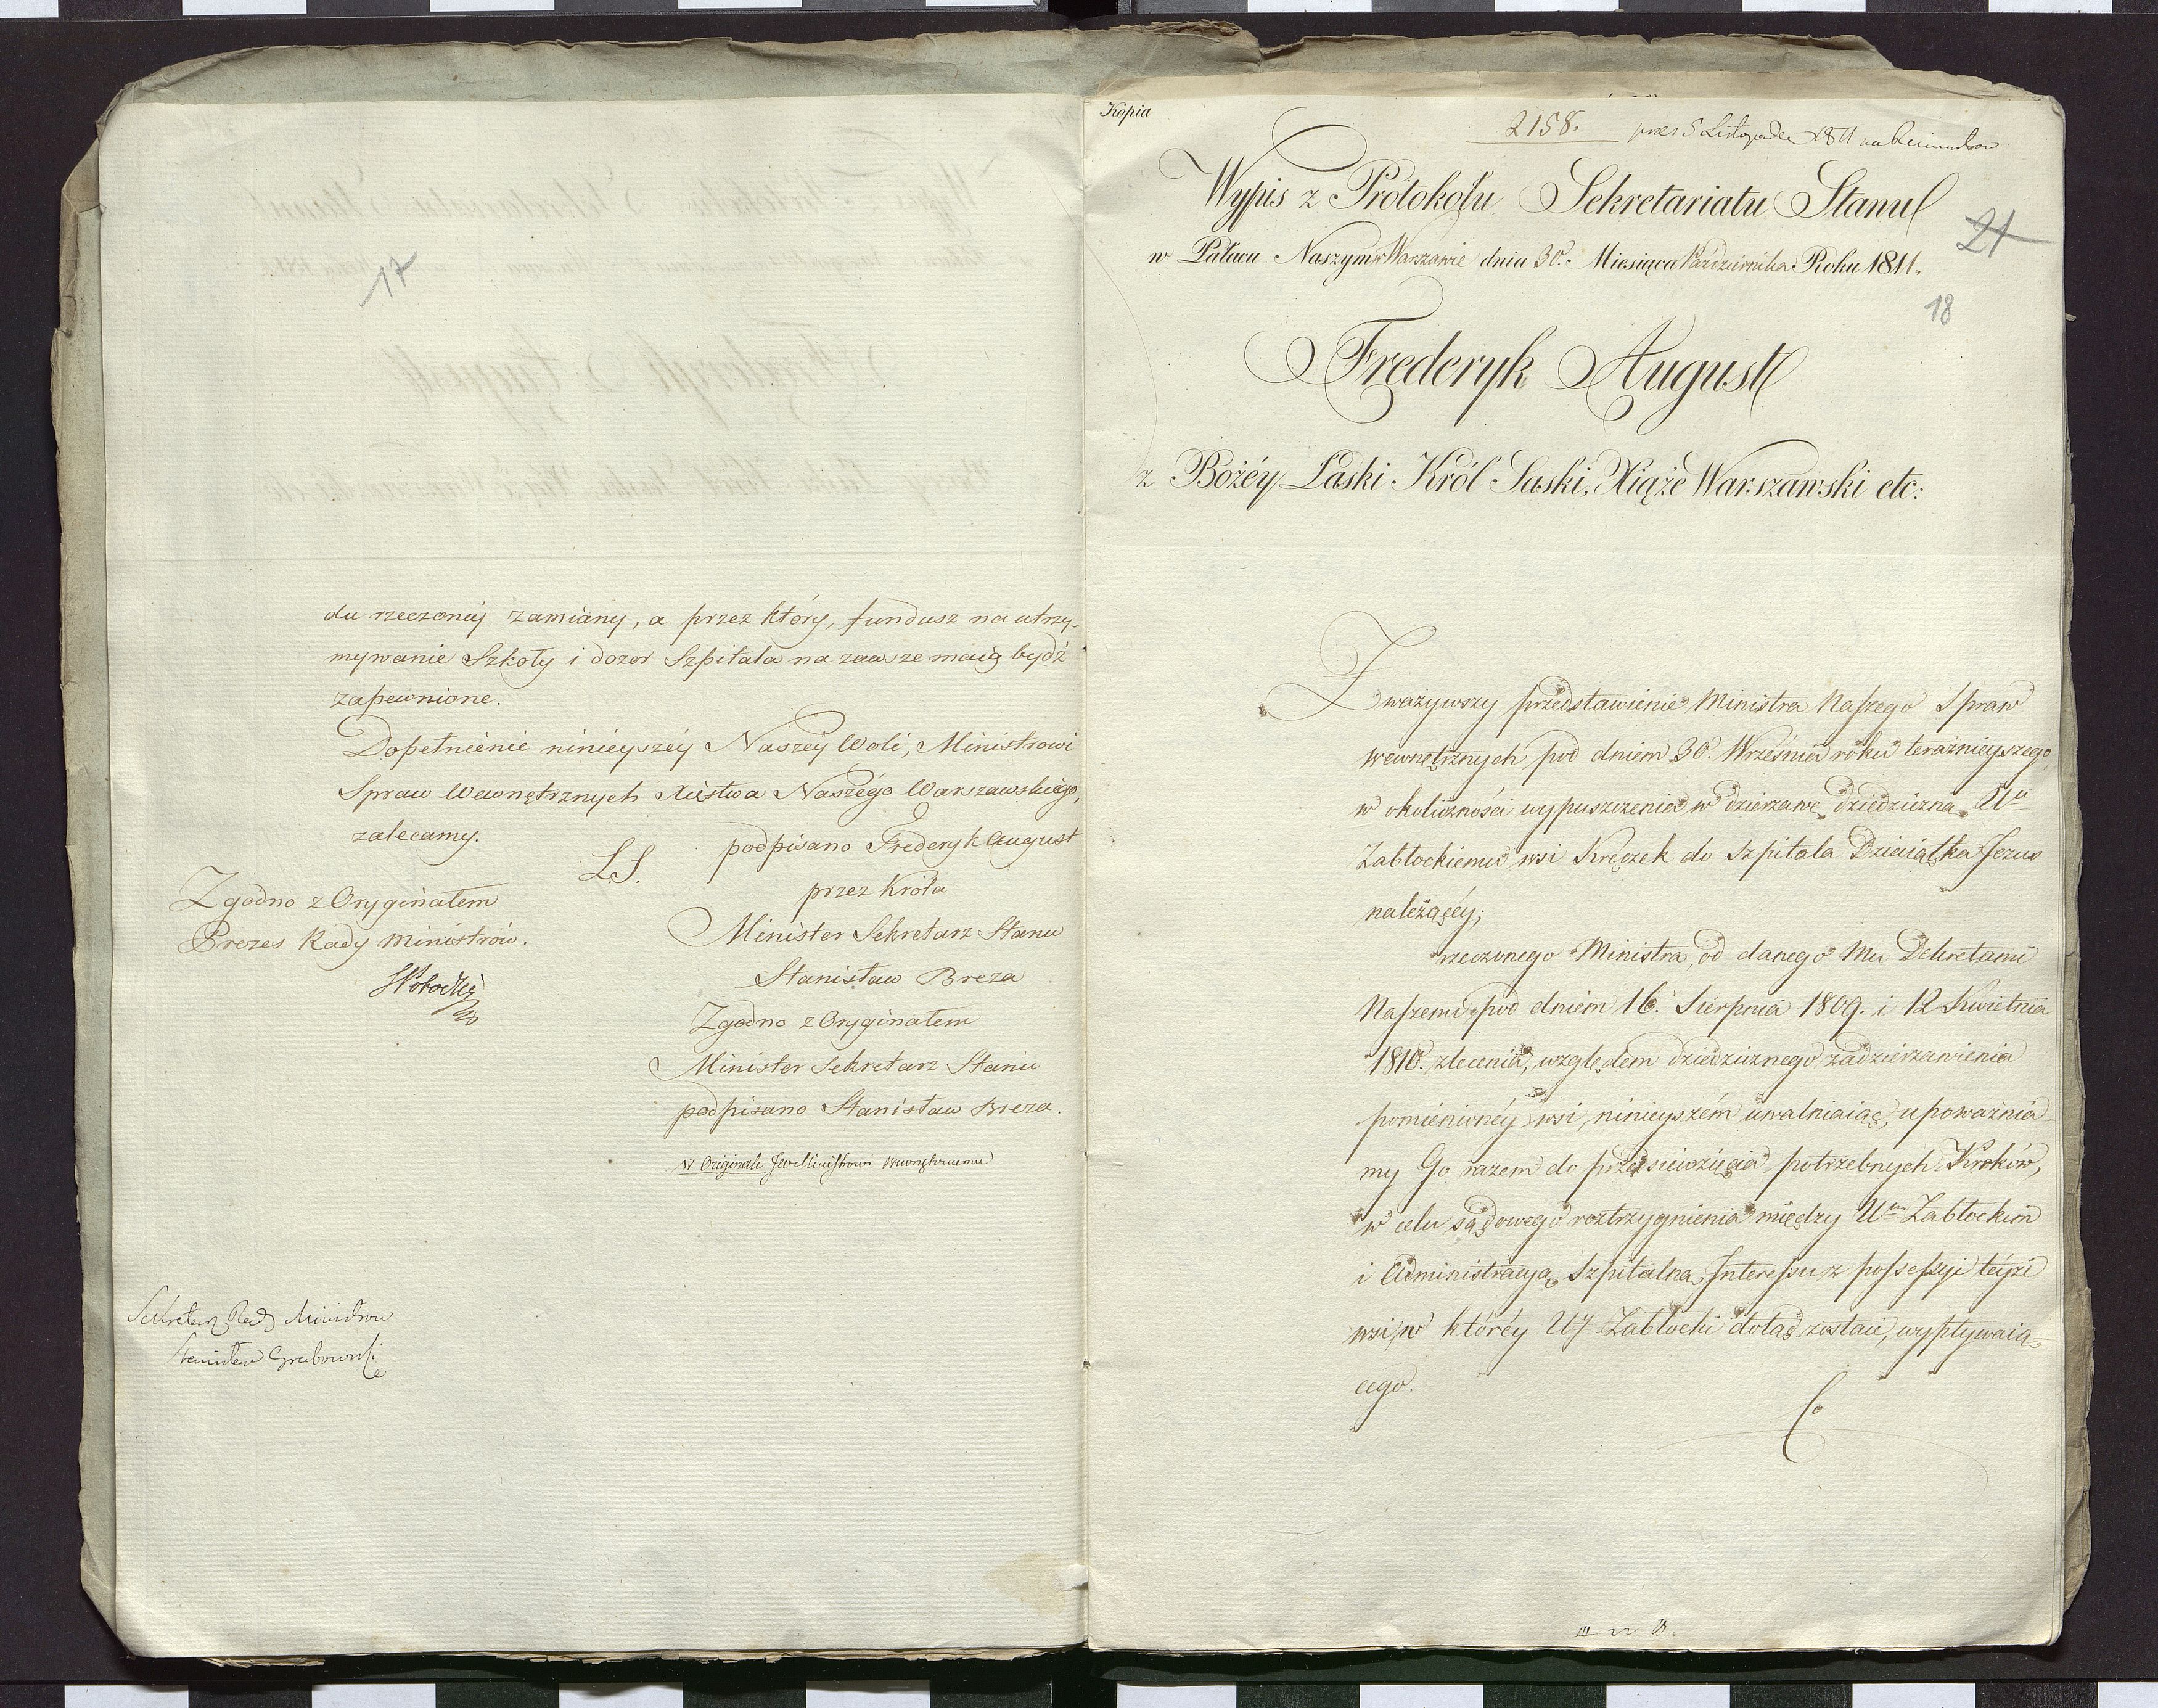 17
du rzeczonéy zamiany, a przez który, fundusz na utrzy-
mywanie Szkoły i dozór Szpitala na zawsze maią bydź
zapewnione.
Dopełnienie ninieyszéy Naszéy Woli, Ministrowi
Spraw Wewnętrznych Xięstwa Naszégo Warszawskiégo,
zalecamy.
L.S.
podpisano Frederyk August
przez Króla
Minister Sekretarz Stanu
Stanisław Breza
Zgodno z Oryginałem
Minister Sekretarz Stanu
podpisano Stanisław Breza.
Zgodno z Oryginałem
Prezes Rady Ministrów.
w Originale Ministrowi Wewnętrznemu
Sekretarz Rady Ministrow
Stanisław Grabowski
Kopia
2158. 5 Listopada 1811
Wypis z Protokołu Sekretariatu Stanu
21
w Pałacu Naszym w Warszawie dnia 30. Miesiąca Października Roku 1811.
18
Frederyk August
z Bożéy Łaski Król Saski, Xiąże Warszawski etc:
Zważywszy przedstawienie Ministra Naszego Spraw
wewnętrznych pod dniem 30. Września roku teraźnieyszego,
w okoliczności wypuszczenia w dzierzawę dziedziczną Uu
Zabłockiemu wsi Kręczek do Szpitala Dzieciątka Jezus
należącéy;
rzeczonego Ministra, od danego Mu Dekretami
Naszemi pod dniem 16. Sierpnia 1809. i 12 Kwietnia
1810. zlecenia, względem dziedzicznego zadzierzawienia
pomienionéy wsi, ninieyszém uwalniaiąc, upoważnia-
my Go razem do przedsięwzięcia potrzebnych Kroków,
w celu sądowego roztrzygnienia między Um Zabłockim
i Administracyą Szpitalną Interessu z possessyi téyże
wsi, w któréy Ur Zabłocki dotąd zostaie, wypływaią-
cego.
Co